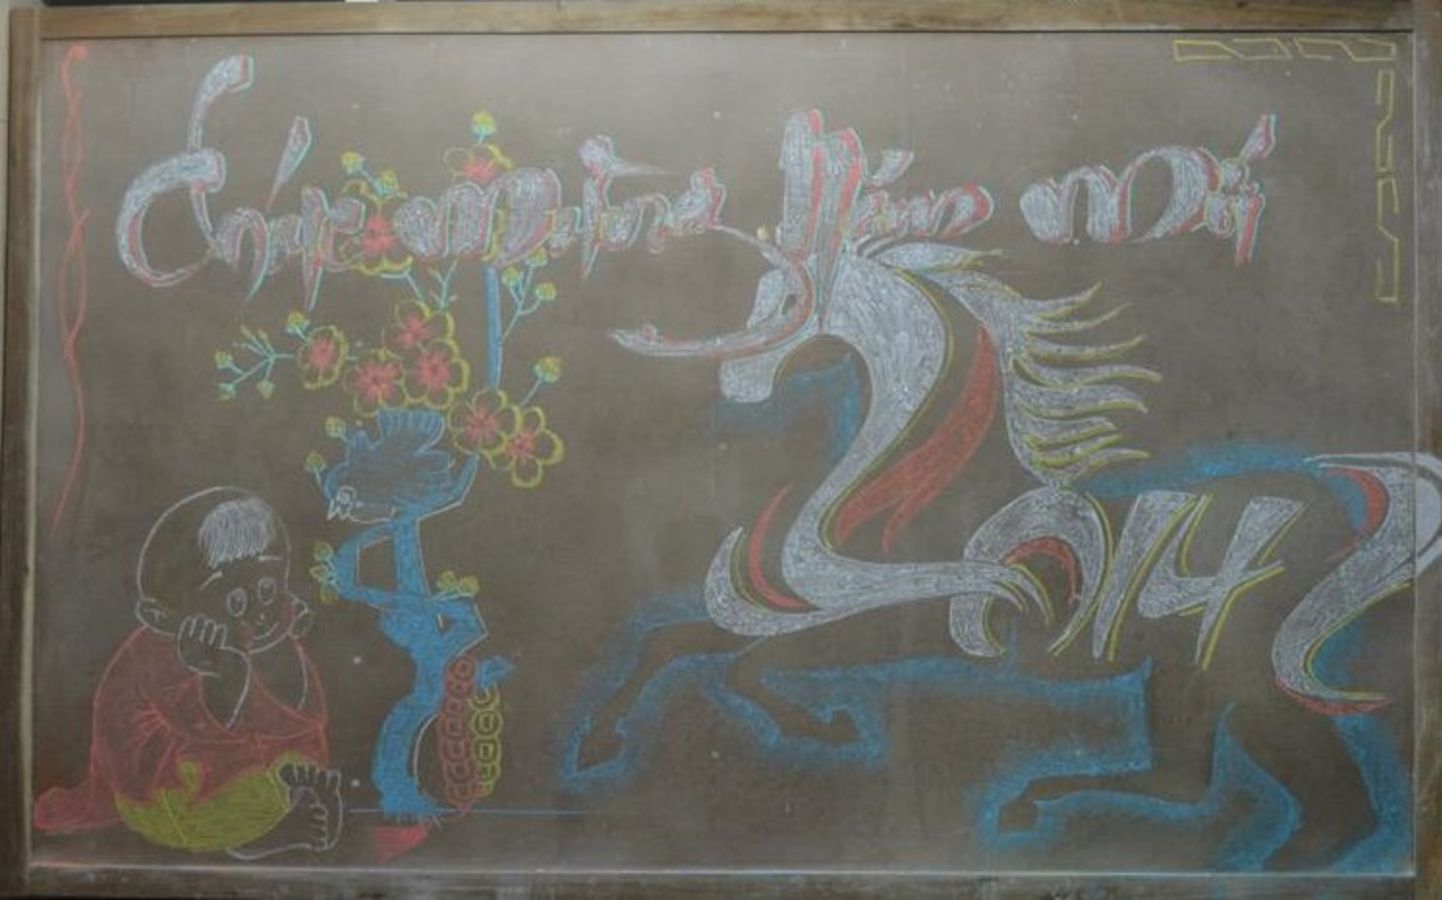 Chúc mừng Năm mới
2014